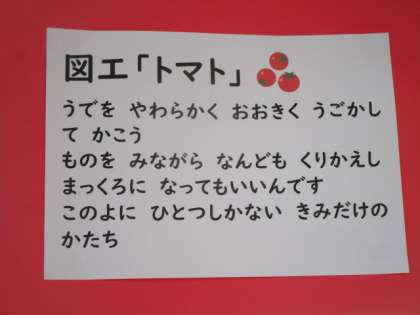 図工「トマト」
うでを やわらかく おおきく うごかし
て かこう
ものを みながら なんども くりかえし
まっくろに なってもいいんです
このよに ひとつしかない きみだけの
かたち